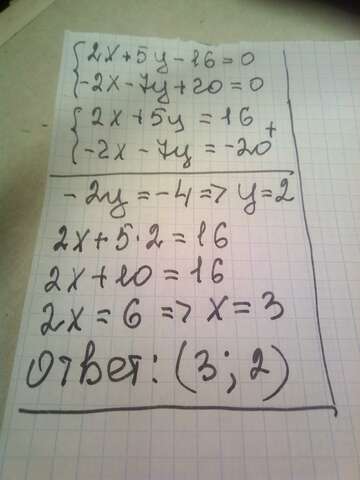 {2x+5y-16=0
{-2x-7y+20=0
{2x+5y=16
{-2x-7y=-20 +
-2y=-4=>y=2
2x+5·2=16
2x+10=16
2x=6=>x=3
Ответ: (3; 2)